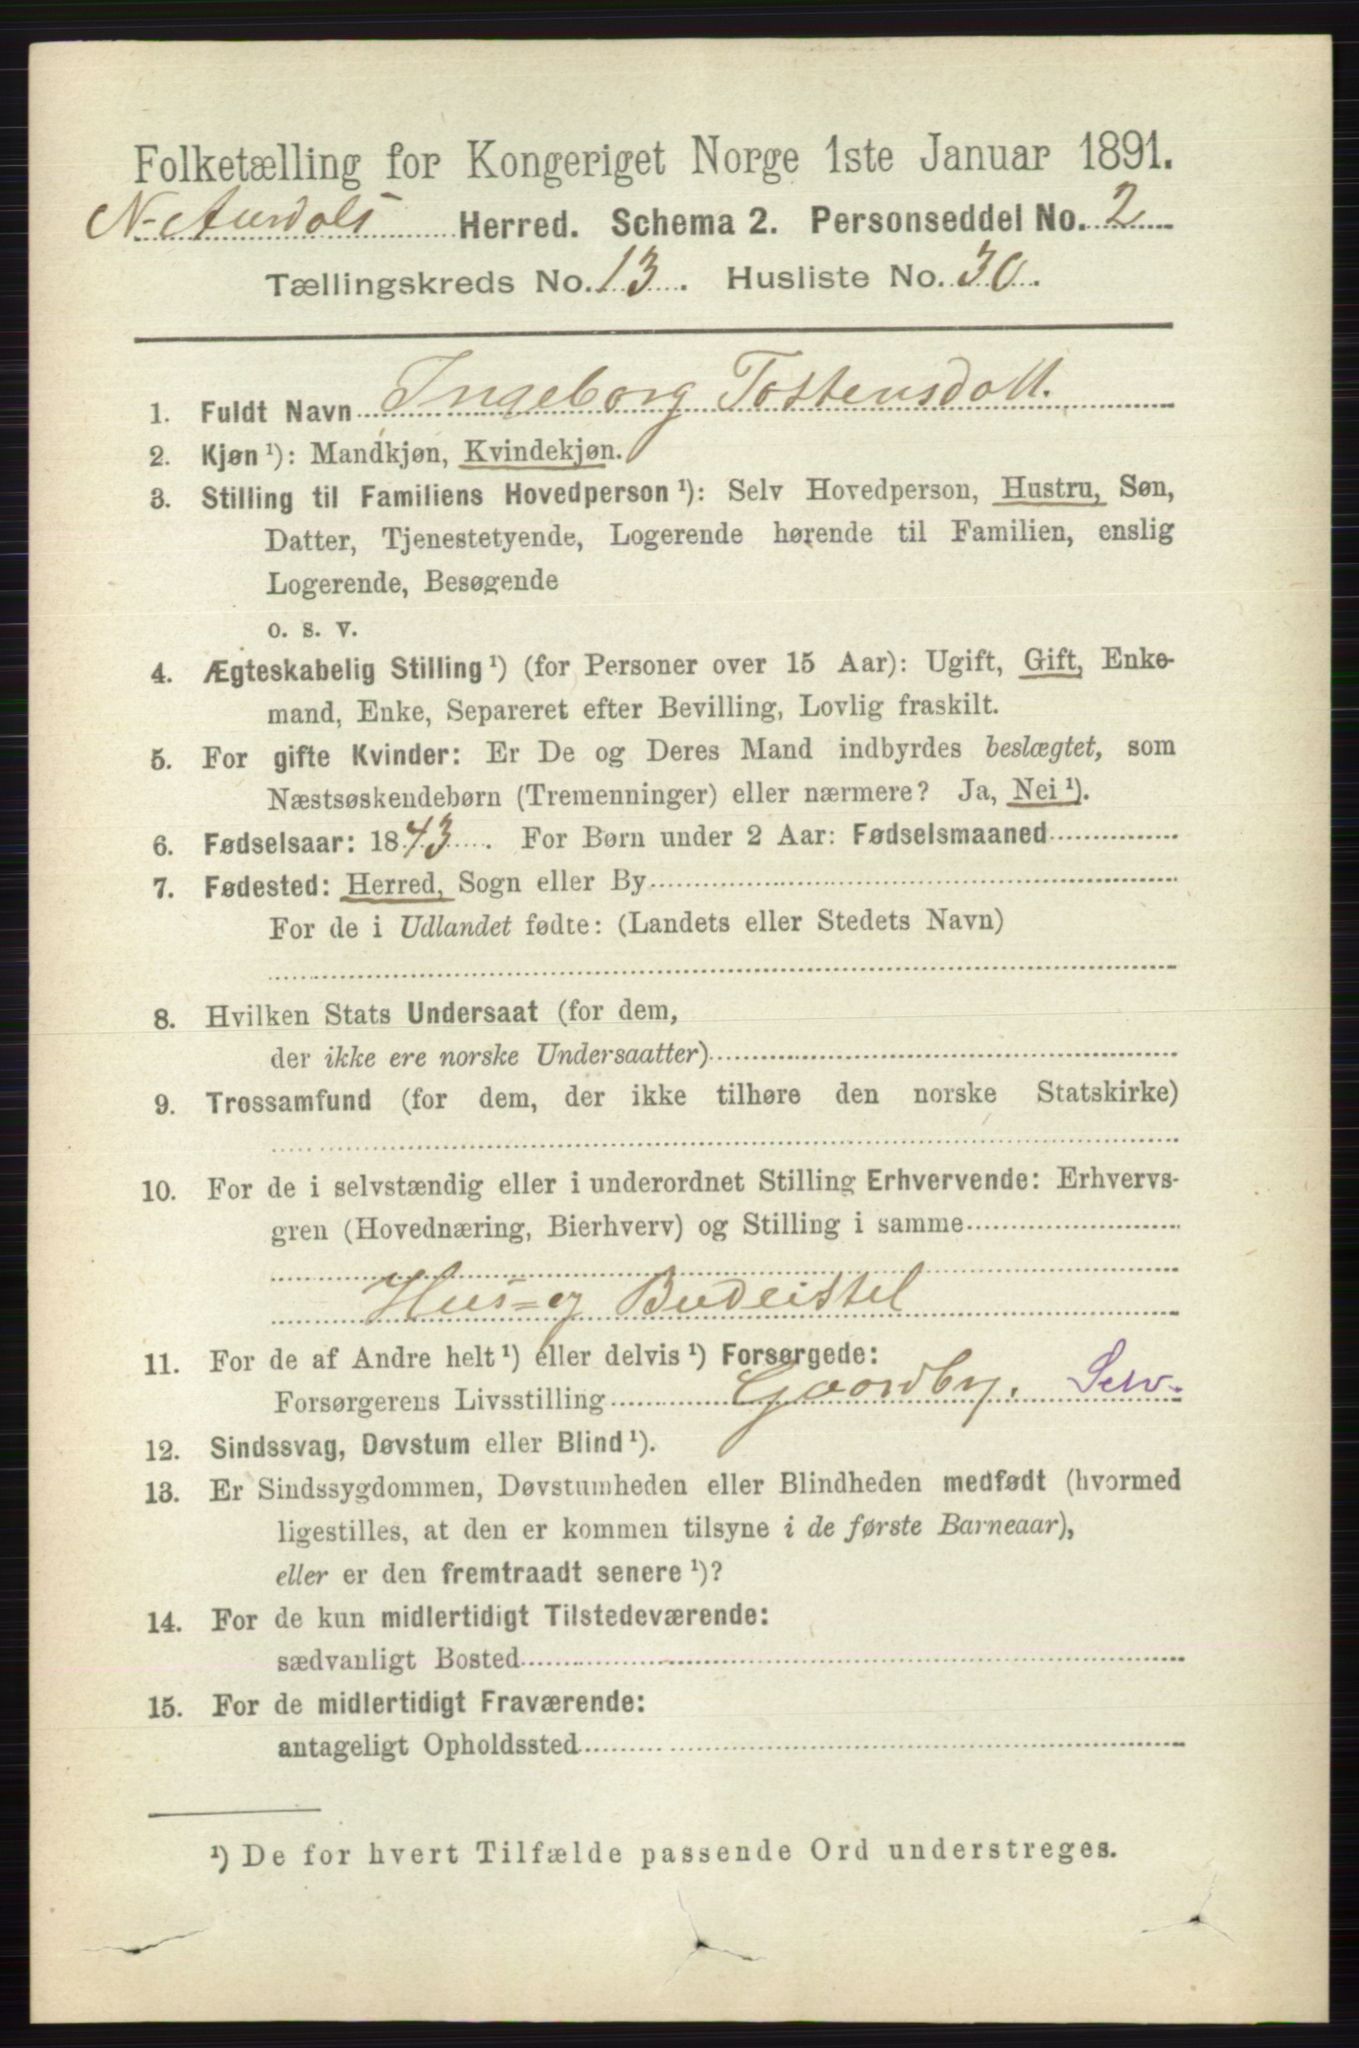 Folketælling for Kongeriget Norge 1ste Januar 1891.
N-Aurdals Herred. Schema 2. Personseddel No. 2
Tællingskreds No. 13. Husliste No. 30.
1. Fuldt Navn Ingeborg Tostensdott.
2. Kjøn ¹): Mandkjøn, Kvindekjøn.
3. Stilling til Familiens Hovedperson ¹): Selv Hovedperson, Hustru, Søn,
Datter, Tjenestetyende, Logerende hørende til Familien, enslig
Logerende, Besøgende
o. s. v.
4. Ægteskabelig Stilling ¹) (for Personer over 15 Aar): Ugift, Gift, Enke-
mand, Enke, Separeret efter Bevilling, Lovlig fraskilt.
5. For gifte Kvinder: Er De og Deres Mand indbyrdes beslægtet, som
Næstsøskendebørn (Tremenninger) eller nærmere? Ja, Nei ¹).
6. Fødselsaar: 1843. For Børn under 2 Aar: Fødselsmaaned
7. Fødested: Herred, Sogn eller By
For de i Udlandet fødte: (Landets eller Stedets Navn)
8. Hvilken Stats Undersaat (for dem,
der ikke ere norske Undersaatter)
9. Trossamfund (for dem, der ikke tilhøre den norske Statskirke)
10. For de i selvstændig eller i underordnet Stilling Erhvervende: Erhvervs-
gren (Hovednæring, Bierhverv) og Stilling i samme
Hus- og Budeistel
11. For de af Andre helt ¹) eller delvis ¹) Forsørgede:
Forsørgerens Livsstilling Gaardbr. Selv.
12. Sindssvag, Døvstum eller Blind ¹).
13. Er Sindssygdommen, Døvstumheden eller Blindheden medfødt (hvormed
ligestilles, at den er kommen tilsyne i de første Barneaar),
eller er den fremtraadt senere ¹)?
14. For de kun midlertidigt Tilstedeværende:
sædvanligt Bosted
15. For de midlertidigt Fraværende:
antageligt Opholdssted
¹) De for hvert Tilfælde passende Ord understreges.